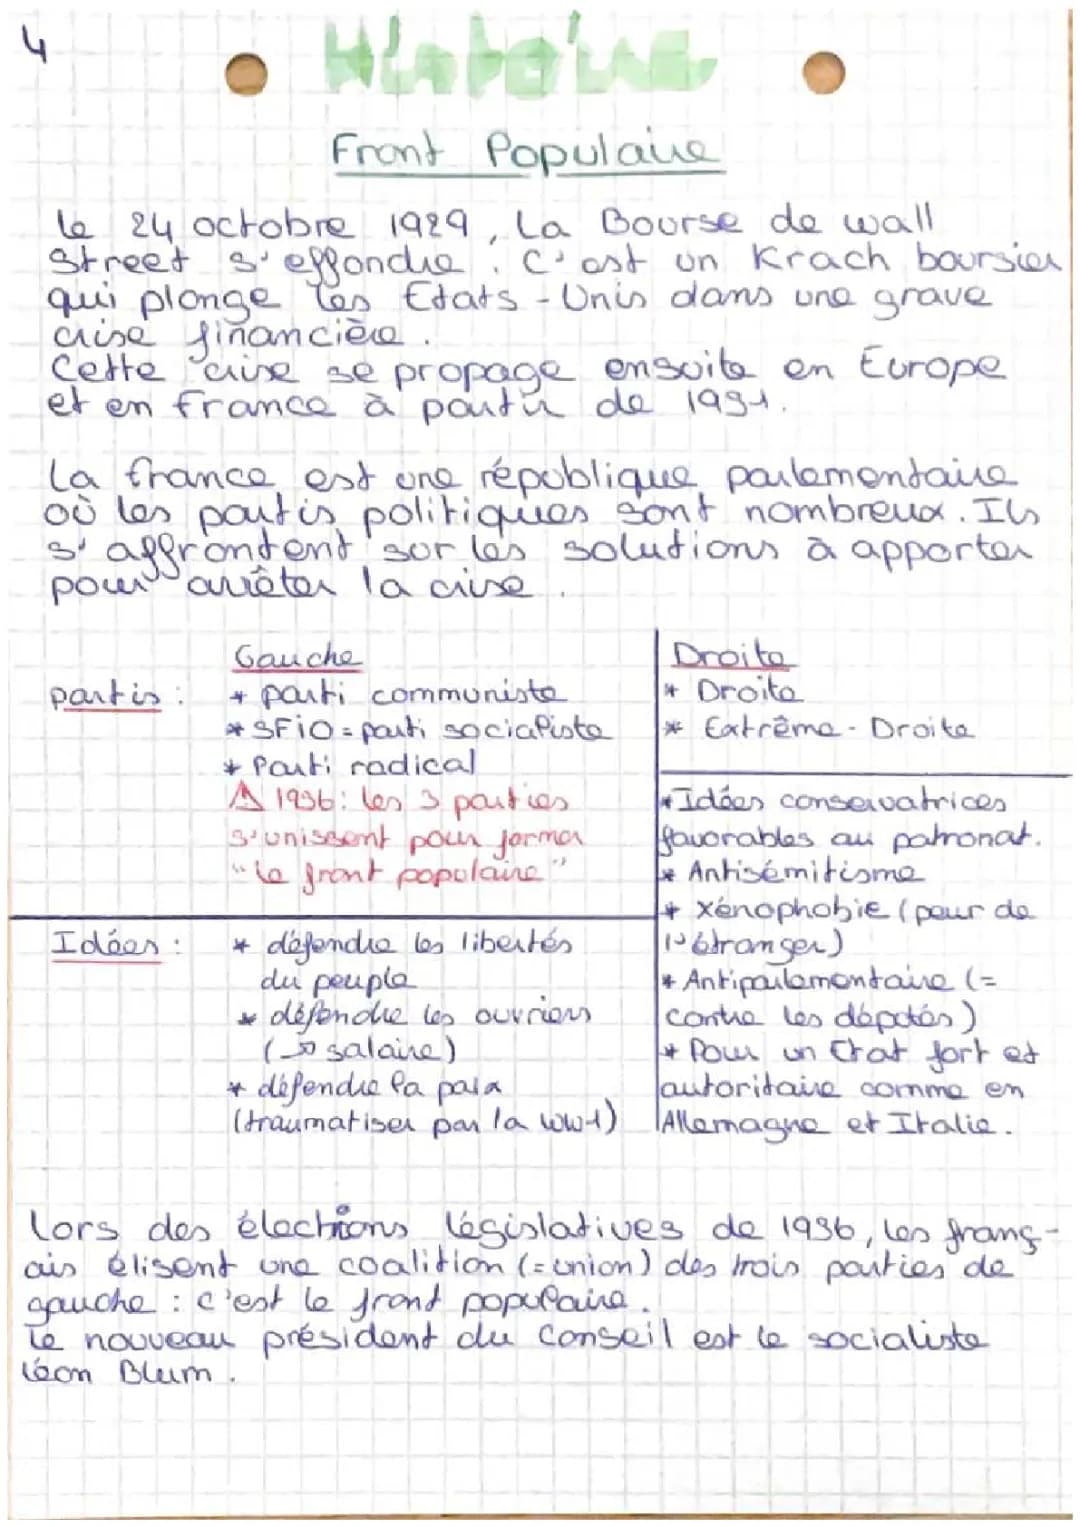 4
Histoire
Front Populaire
le 24 octobre 1929, La Bourse de wall
Street s'effondre. C'est un Krach boursier
qui plonge les Etats-Unis dans une grave
crise financière.
Cette crise se propage ensuite en Europe
et en france à partir de 1931.
La france est une république parlementaire
où les partis politiques sont nombreux. Ils
s'affrontent sur les solutions à apporter
pour arrêter la crise.
Gauche
partis :
* parti communiste
* SFiO = parti socialiste
* Parti radical
⚠ 1936 : les 3 parties
s'unissent pour former
"le front populaire"
Droite
* Droite
* Extrême-Droite
Idées :
* défendre les libertés
du peuple
* défendre les ouvriers
(→ salaire)
* défendre la paix
(traumatiser par la ww1)
* Idées conservatrices
favorables au patronat.
* Antisémitisme
* xénophobie (peur de
l'étranger)
* Antiparlementaire (=
contre les députés)
* Pour un Etat fort et
autoritaire comme en
Allemagne et Italie.
Lors des élections législatives de 1936, les franç-
ais élisent une coalition (= union) des trois parties de
gauche : c'est le front populaire.
Le nouveau président du Conseil est le socialiste
Léon Blum.